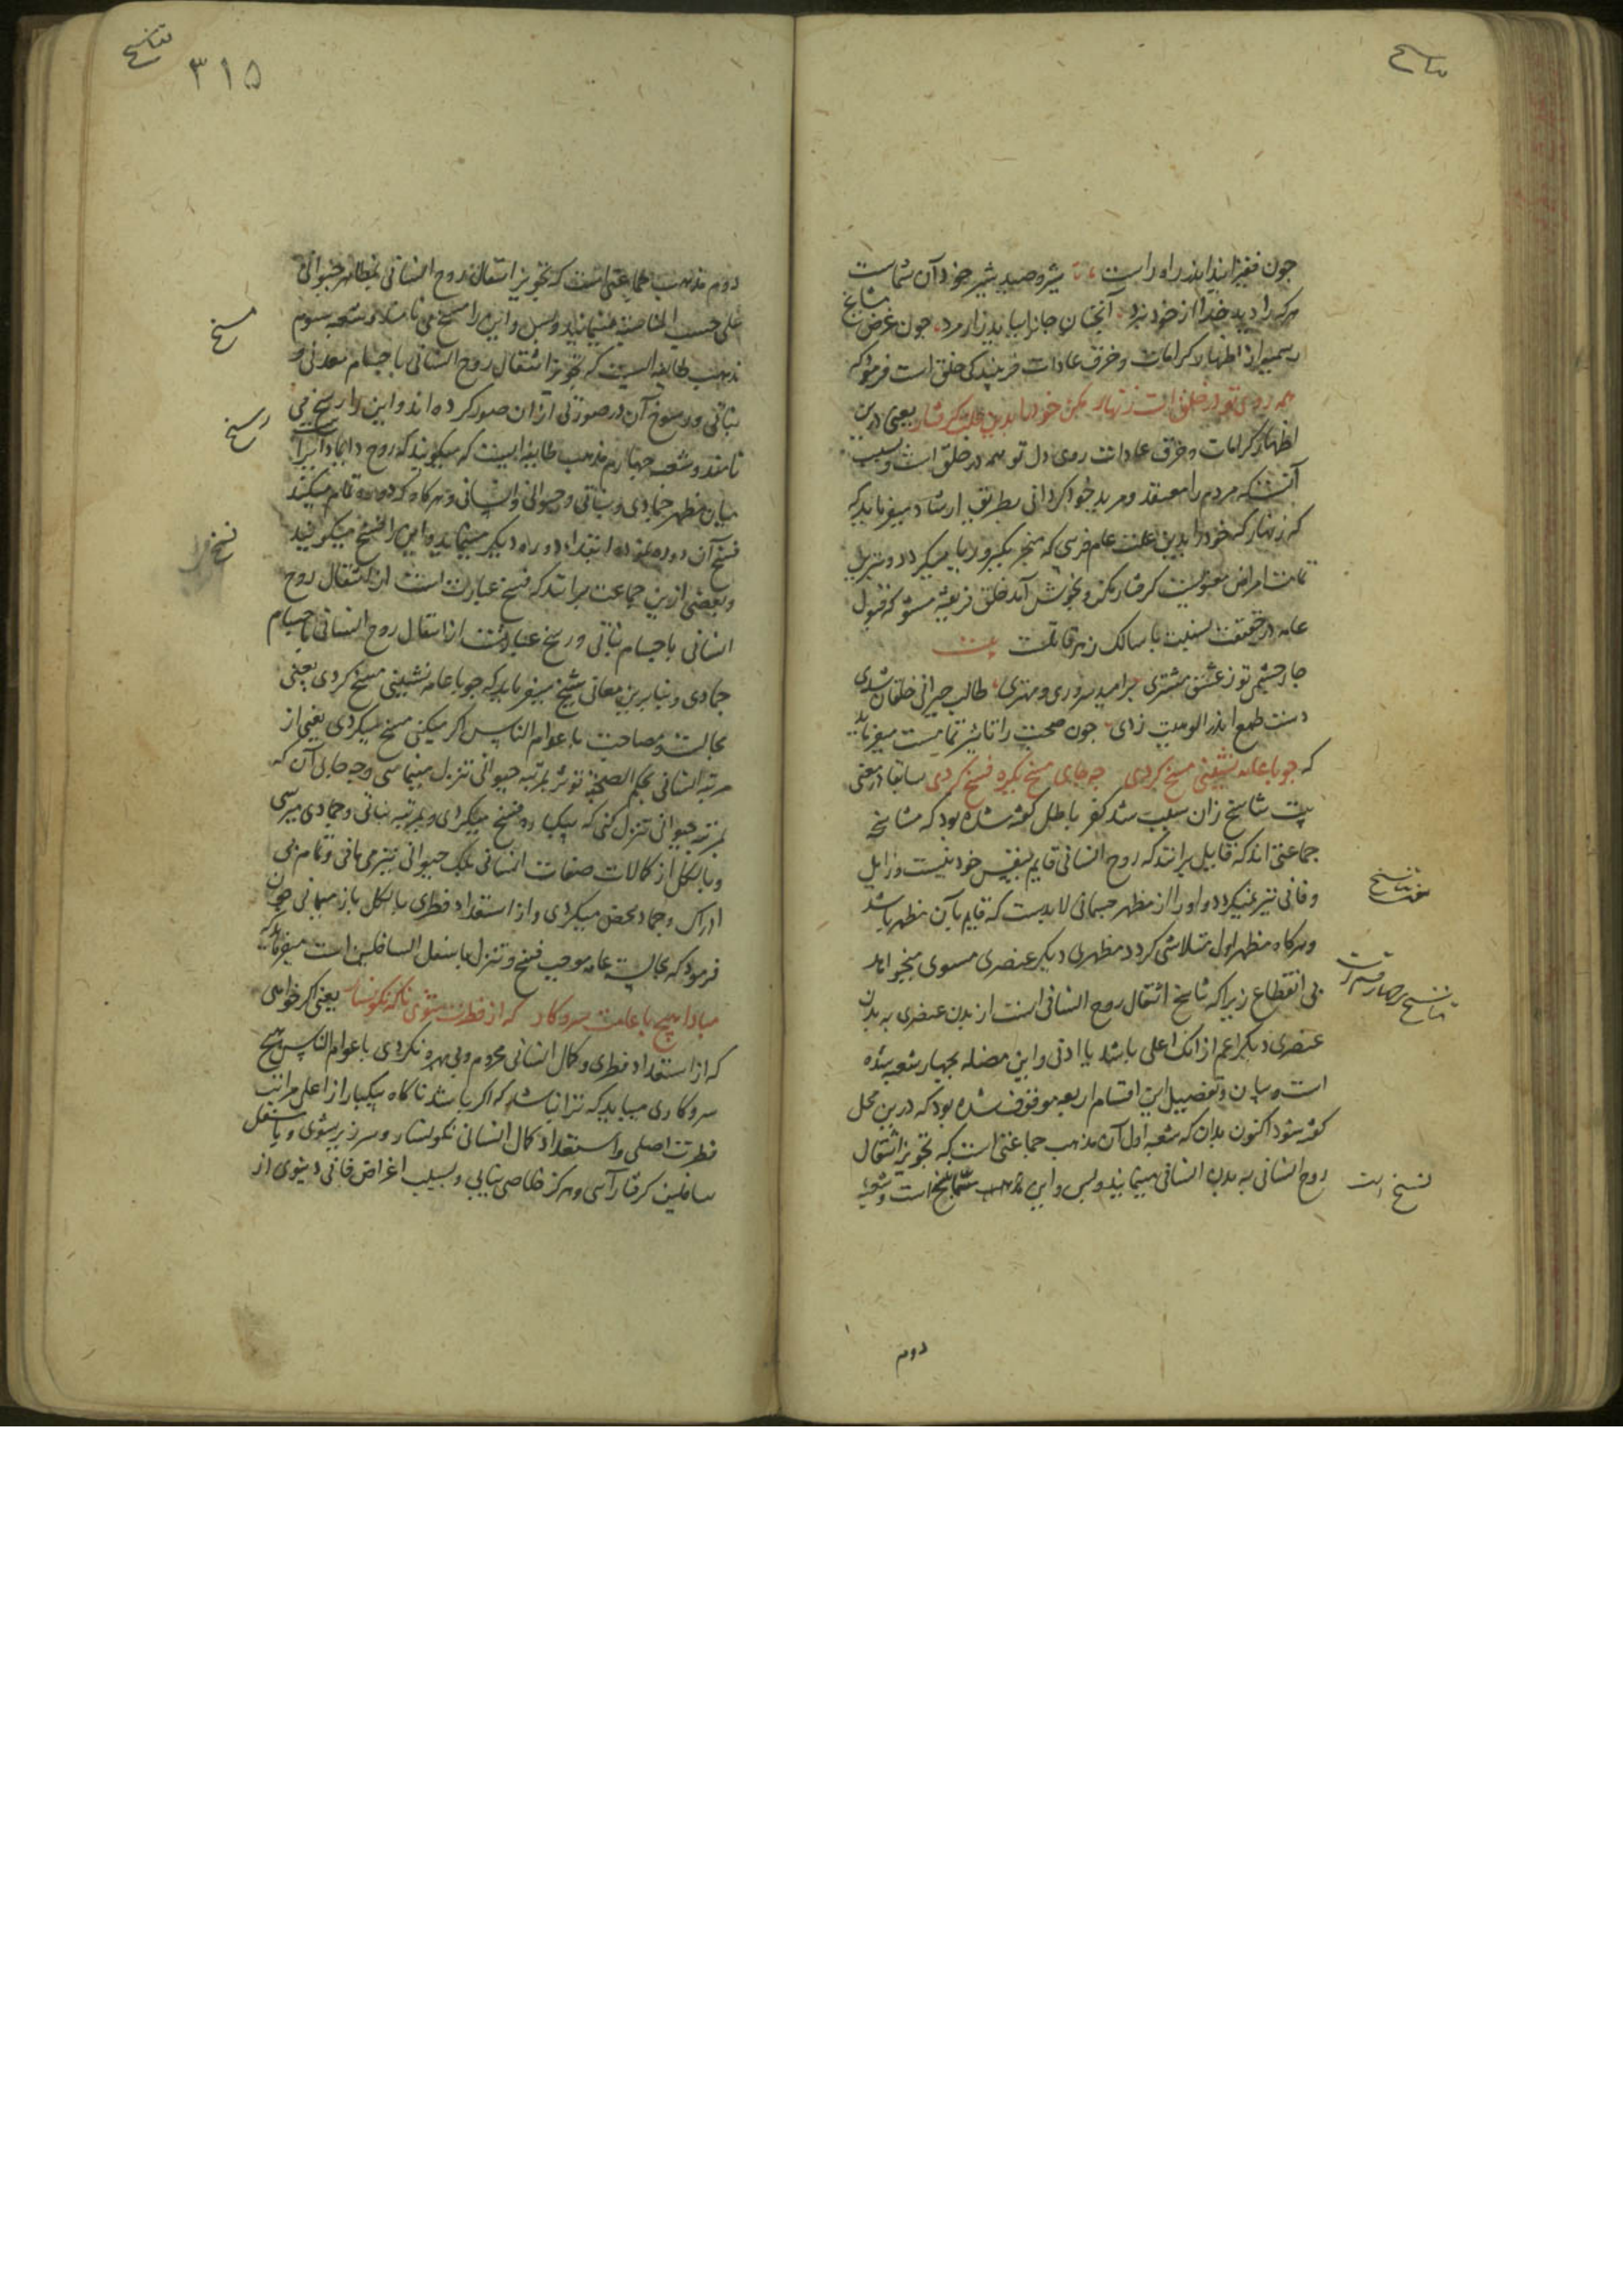 تناسخ
چون فقیر ایندا اندر راه راست شیر و صید شیر خود آن شماست
هر که را دید خدا از خود نبرد آنچنان جانرا بباید زار مرد چون غرض مشایخ
رسمی از اظهار کرامات و خرق عادات فریبندگی خلق است فرمود که
همه روی تو در خلق است زنهار مکن خود را بدین علت گرفتار یعنی درین
اظهار کرامات و خرق عادات روی دل تو همه در خلق است و بسبب
آنست که مردم را معتقد و مرید خود گردانی بطریق ارشاد میفرماید که
که زنهار که خود را بدین علت عام فریبی که منجر بکبر و ریا میگردد و مزیل
تمامت امراض معنویست گرفتار مکن و بخوش آمد خلق فریفته مشو که قبول
عامه در حقیقت نسبت با سالک زهر قاتلست بیت
چار چشمی تو ز عشق مشتری بر امید سروری و مهتری طالب حیرانی خلقان شدی
دست طمع اندر الوهیت زدی چون صحبت را تاثیر تمامیست میفرماید
که چو با عامه نشینی مسخ گردی چه جای مسخ یکره فسخ گردی سابقا در معنی
بیت تناسخ زان سبب شد کفر باطل گفته شده بود که تناسخیه
جماعتی اند که قایل برانند که روح انسانی قایم بنفس خود نیست و زایل
و فانی نیز نمیگردد و او را از مظهر جسمانی لابدست که قایم بآن مظهر باشد
و هر گاه مظهر اول متلاشی گردد مظهری دیگر عنصری مسوی میخواهد
بی انقطاع زیرا که تناسخ انتقال روح انسانی است از بدن عنصری به بدن
عنصری دیگر اعم از آنک اعلی باشد یا ادنی و این مضله بچهار شعبه شده
است و بیان و تفصیل این اقسام اربعه موقوف شده بود که درین محل
گفته شود اکنون بدان که شعبه اول آن مذهب جماعتی است که تجویز انتقال
روح انسانی به بدن انسانی مینمایند و بس و این مذهب نسخ است و شعبه
تناسخ
تناسخ چهار قسم است
نسخ است
دوم
تناسخ
۳۱۵
دوم مذهب جماعتی است که تجویز انتقال روح انسانی بمظاهر حیوانی
علی حسب المناسبة مینمایند و بس و این را مسخ می نامند و شعبه سوم
مذهب طایفه ایست که تجویز انتقال روح انسانی باجسام معدنی و
نباتی و رسوخ آن در صورتی از آن صور کرده اند و این را رسخ می
نامند و شعبه چهارم مذهب طایفه ایست که میگویند که روح دایما دایر است
میان مظهر جمادی و نباتی و حیوانی و انسانی و هر گاه که دوره تمام میکند
فسخ آن دوره نموده ابتداء دوره دیگر مینماید و این را فسخ میگویند
و بعضی ازین جماعت برانند که فسخ عبارت است از انتقال روح
انسانی باجسام نباتی و رسخ عبارتست از انتقال روح انسانی باجسام
جمادی و بنابرین معانی شیخ میفرماید که چو با عامه نشینی مسخ گردی یعنی
مجالست و مصاحبت با عوام الناس اگر میکنی مسخ میگردی یعنی از
مرتبه انسانی بحکم الصحبة تؤثر بمرتبه حیوانی تنزل مینمایی و چه جای آن که
بمرتبه حیوانی تنزل کنی که بیکباره فسخ میگردی و بمرتبه نباتی و جمادی میرسی
و بالکل از کمالات صفات انسانی بلک حیوانی نیز می مانی و تمام بی
ادراک و جماد محض میگردی و از استعداد فطری بالکل باز میمانی چون
فرمود که مجالست عامه موجب فسخ و تنزل باسفل السافلین است میفرماید که
مبادا هیچ با عامت سروکار که از فطرت شوی ناگه نگونسار یعنی اگر خواهی
که از استعداد فطری و کمال انسانی محروم و بی بهره نگردی با عوام الناس هیچ
سروکاری میباید که ترا نباشد که اگر باشد ناگاه بیکبار از اعلی مراتب
فطرت اصلی و استعداد کمال انسانی نگونسار و سرزیر شوی و باسفل
سافلین گرفتار آیی و هرگز خلاصی نیابی و بسبب اغراض فانی دنیوی از
مسخ
رسخ
فسخ